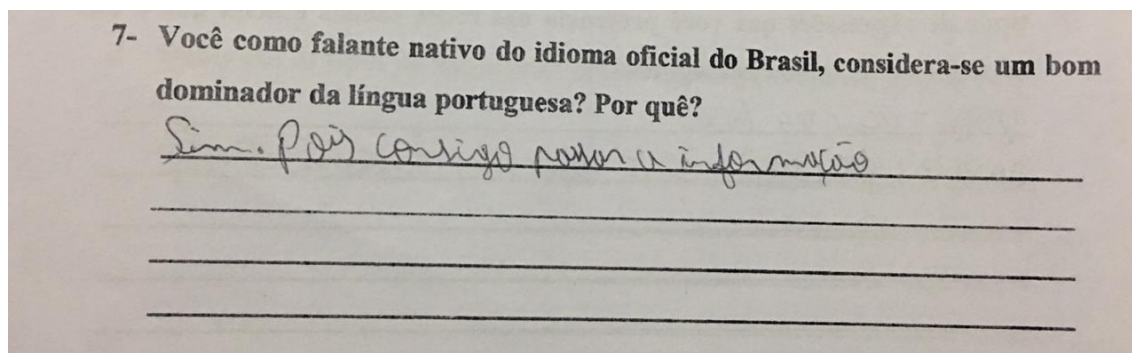 7- Você como falante nativo do idioma oficial do Brasil, considera-se um bom
dominador da língua portuguesa? Por quê?
Sim. Pois consigo passar a informação